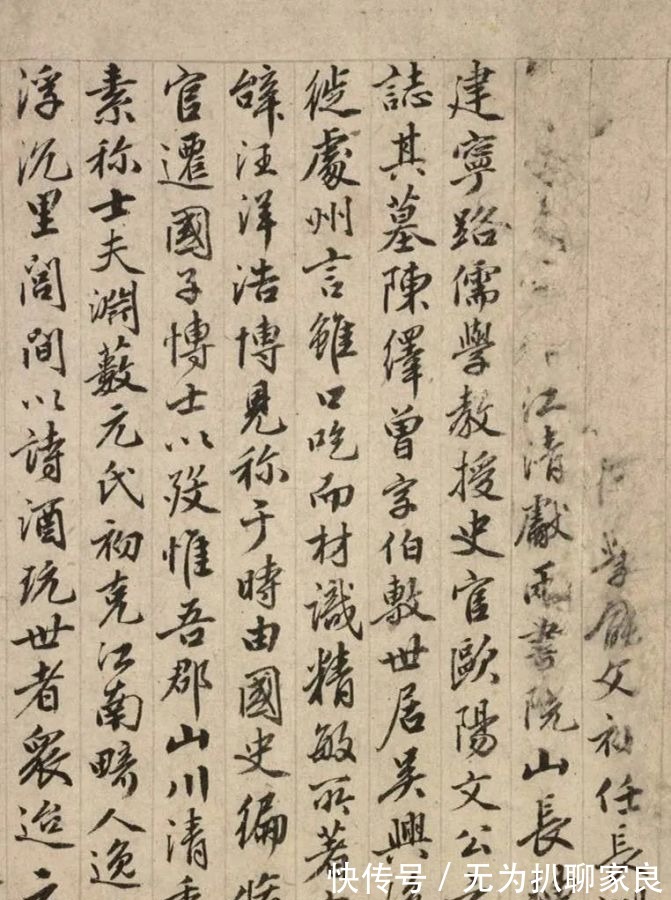 學能父初任長
江清獻兩書院山長
建寧路儒學教授史官歐陽文公
誌其墓陳繹曾字伯敷世居吳興
徙處州言雖口吃而材識精敏所著
辭汪洋浩博見称于時由國史編
官遷國子博士以歿惟吾郡山川清
素称士夫淵藪元氏初克江南畸人逸
浮沉里閭間以詩酒玩世者衆迨
快传号 / 无为扒聊家良